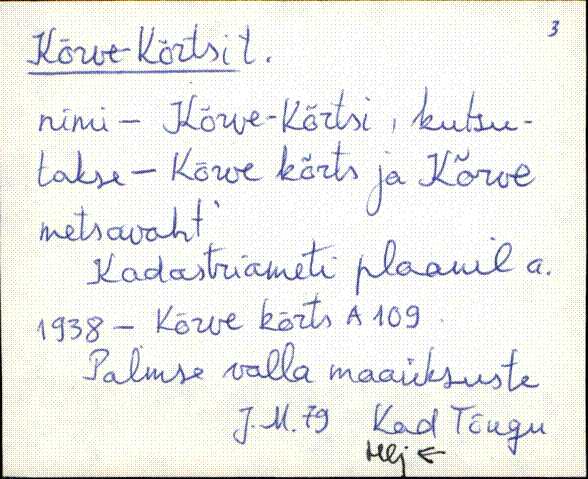 3
Kõrve-Kõrtsi t.
nimi – Kõrve-Kõrtsi, kutsu-
takse – Kõrve kõrts ja Kõrve
metsavaht
Kadastriameti plaanil a.
1938 – Kõrve kõrts A 109
Palmse valla maaüksuste
J. M. 79 Kad Tõugu
Hlj ←